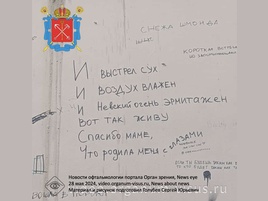 СНЕЖА ШМОНДА
КОРОТКАЯ ВСТРЕЧА
И ВЫСТРЕЛ СУХ
И ВОЗДУХ ВЛАЖЕН
И НЕВСКИЙ ОЧЕНЬ ЭРМИТАЖЕН
ВОТ ТАК ЖИВУ
СПАСИБО МАМЕ,
ЧТО РОДИЛА МЕНЯ С ГЛАЗАМИ
Новости офтальмологии портала Орган зрения, News eye
28 мая 2024, video.organum-visus.ru, News about news
Материал и рисунок подготовил Голубев Сергей Юрьевич